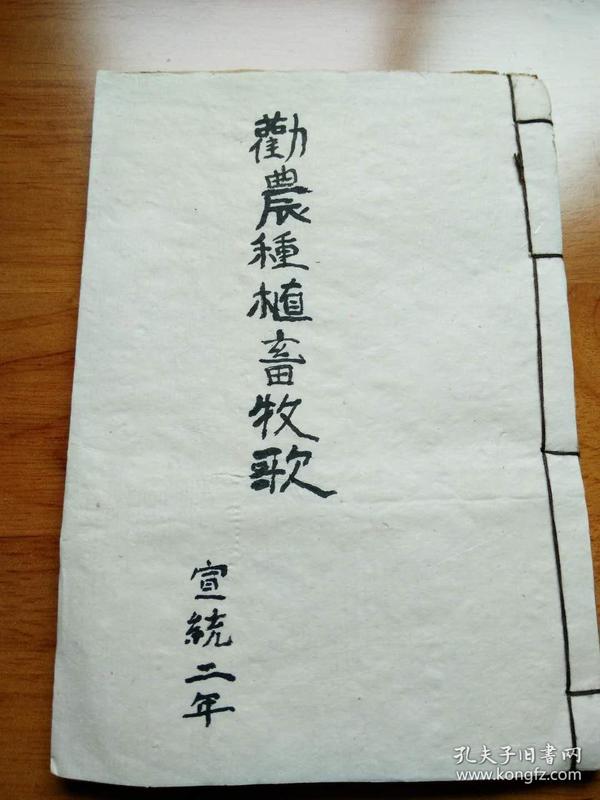 勸農種植畜牧歌
宣統二年
孔夫子旧書网
www.kongfz.com